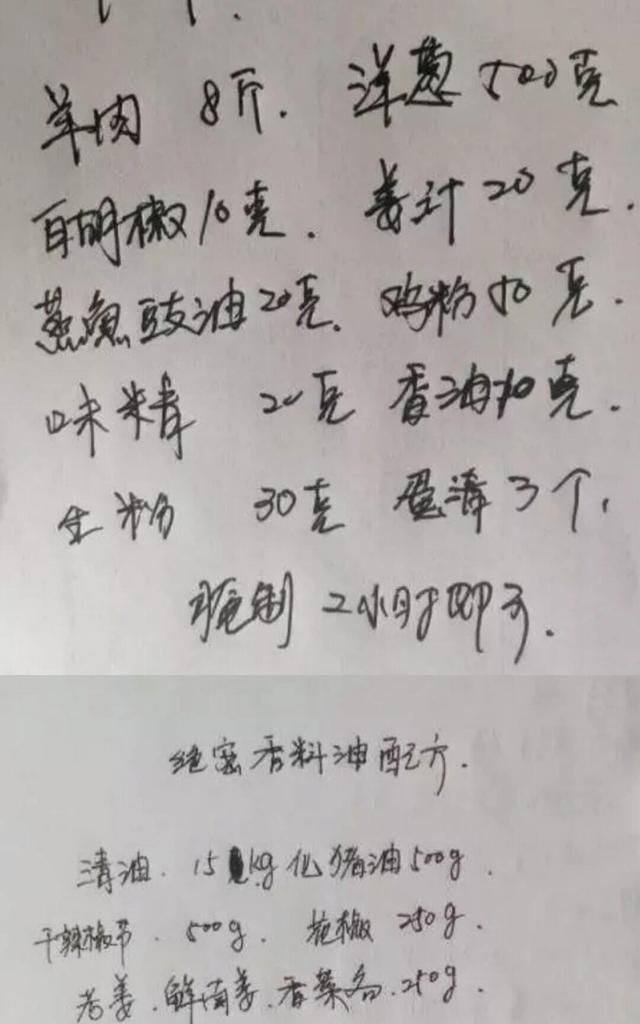 羊肉 8斤. 洋葱 500克
白胡椒10克. 姜汁20克.
蒸鱼豉油20克. 鸡粉50克.
味精 20克 香油10克.
生粉 30克 蛋清3个.
腌制 2小时即可.
绝密香料油配方.
清油. 15kg 化猪油500g.
干辣椒节. 500g. 花椒 250g.
老姜.鲜南姜.香菜各.250g.